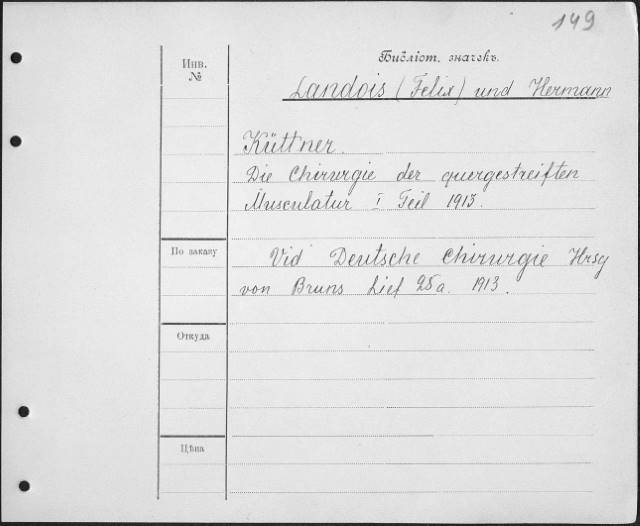 149
Бібліот. значекъ.
Инв.
№
Landois (Felix) und Hermann
Küttner.
Die Chirurgie der quergestreiften
Musculatur I Teil 1913.
По заказу
Vid Deutsche Chirurgie Hrsg
von Bruns Lief 25a. 1913.
Откуда
Цѣна